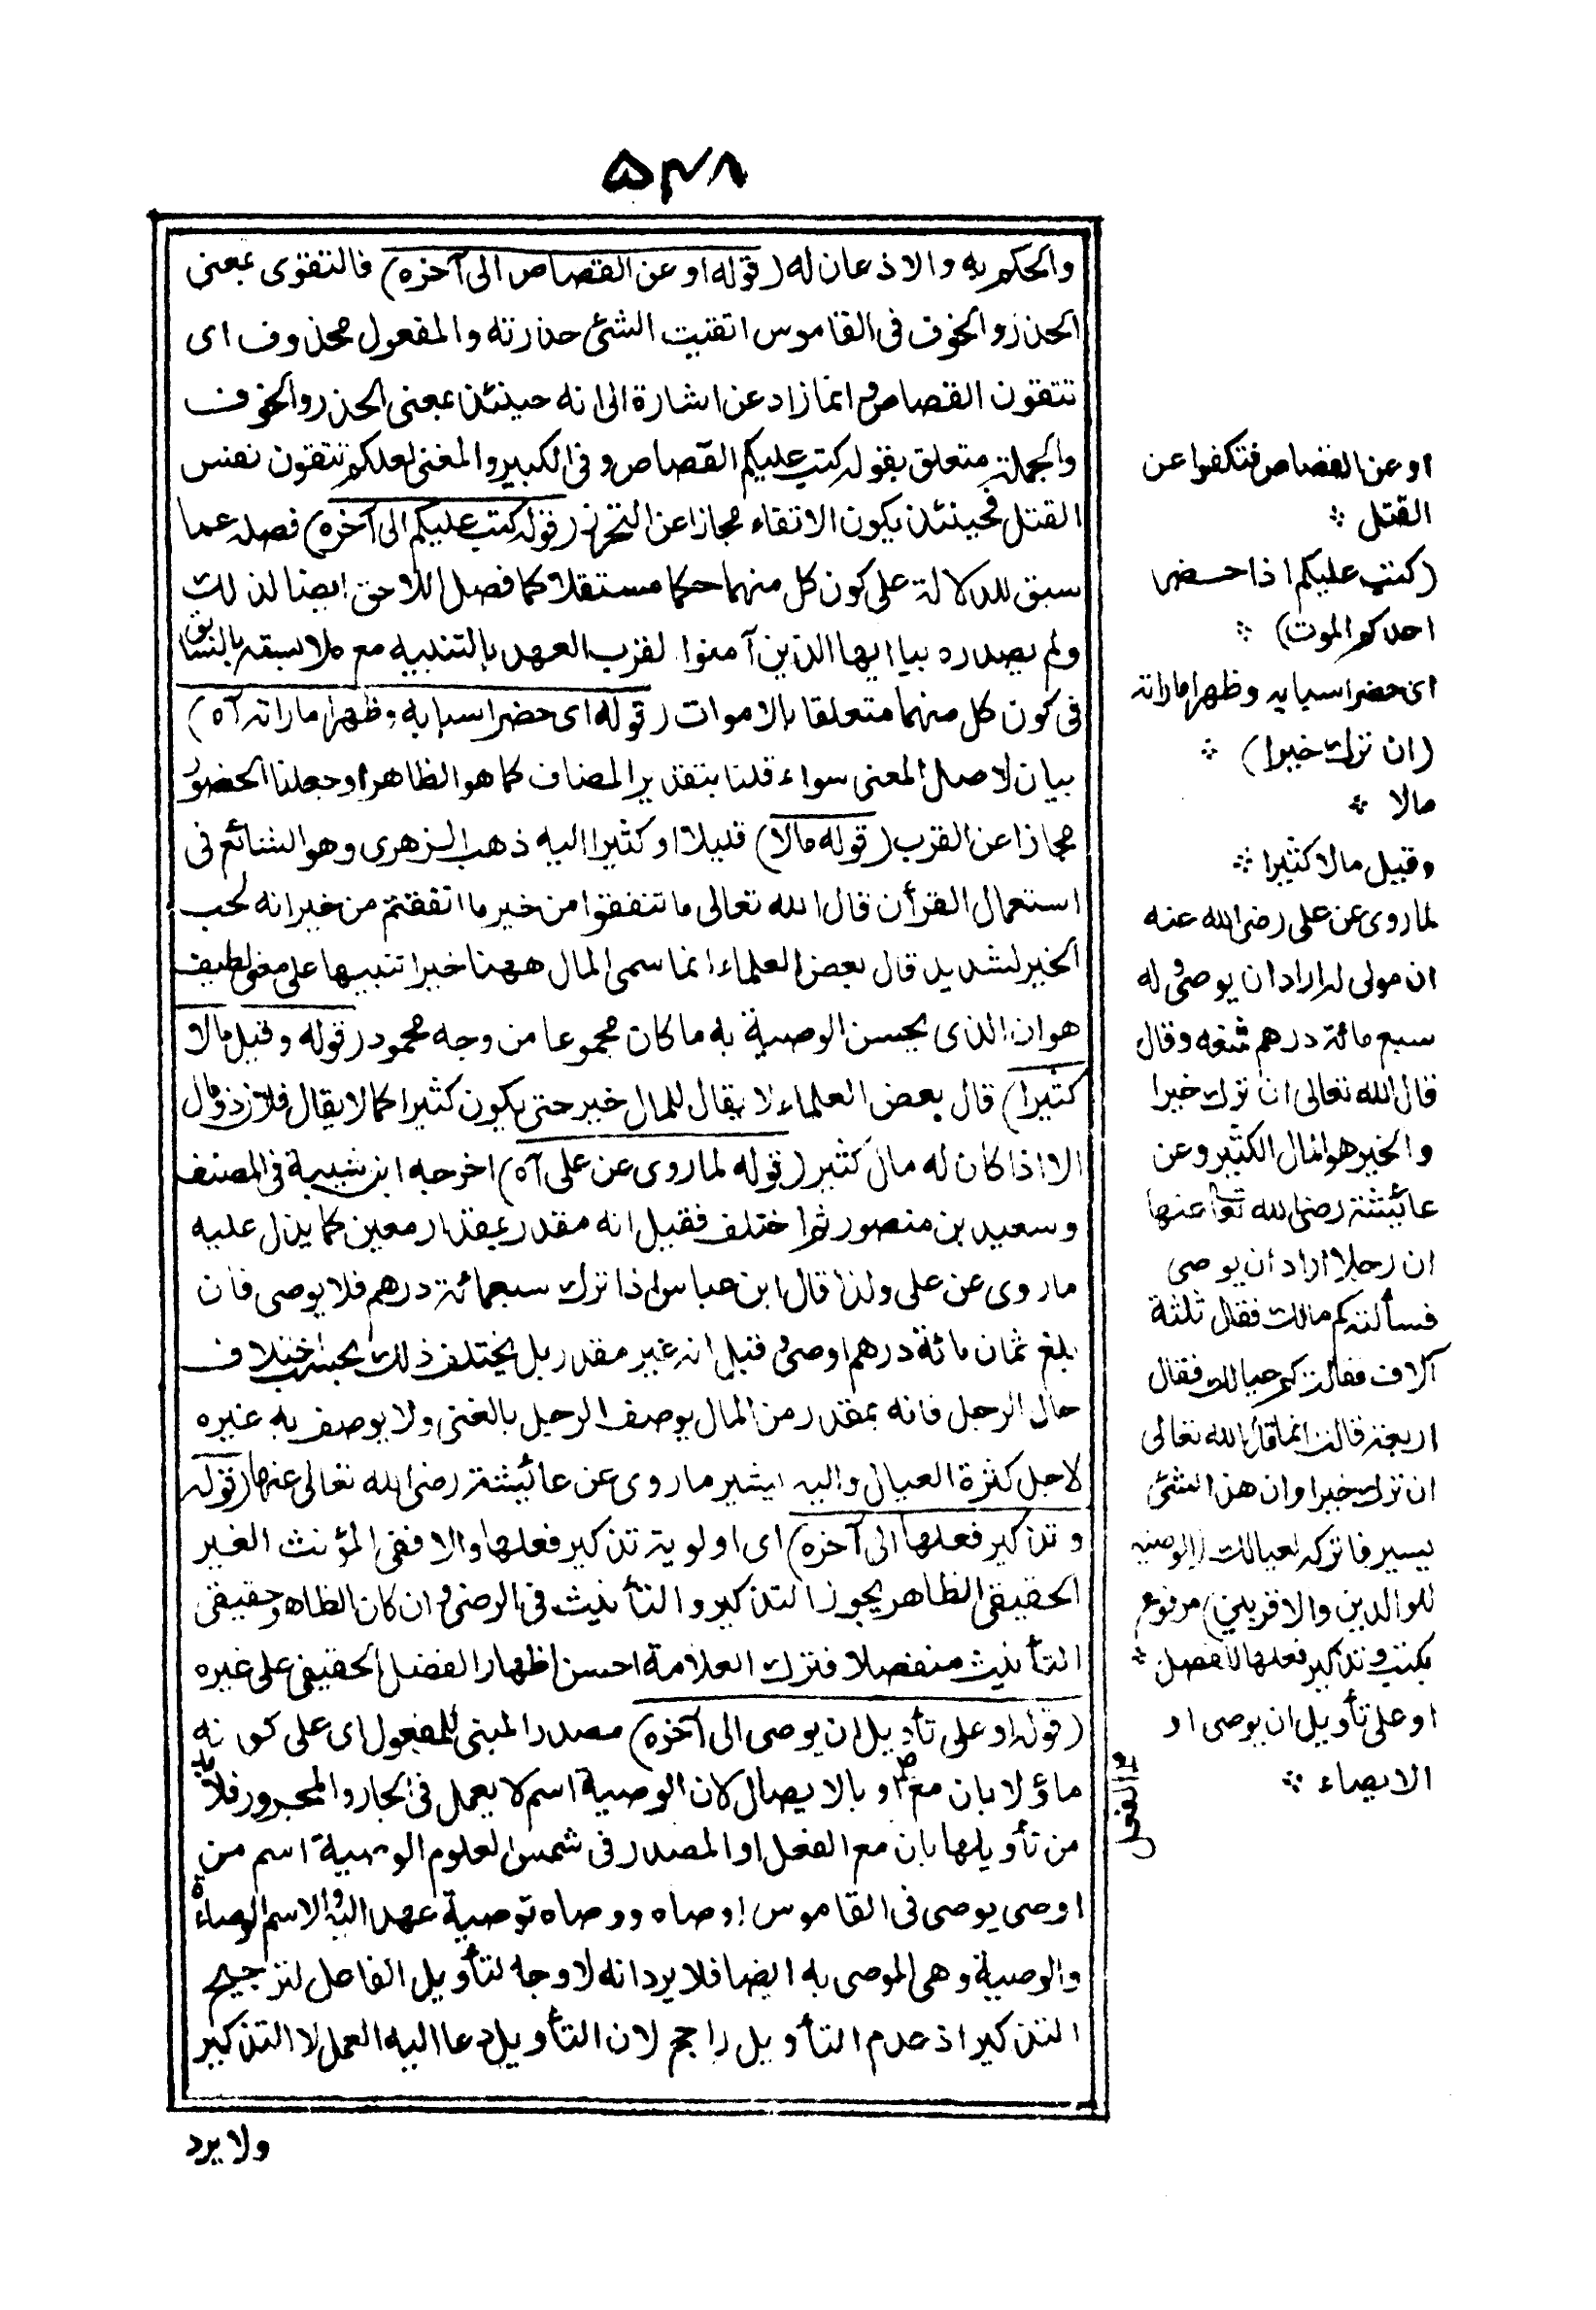 ٥٣٨
والحكم به والاذعان له (قوله او عن القصاص الى آخره) فالتقوى بمعنى
الحذر والخوف فى القاموس اتقيت الشئ حذرته والمفعول محذوف اى
تتقون القصاص وانما زاد عن اشارة الى انه حينئذ بمعنى الحذر والخوف
والجملة متعلق بقوله كتب عليكم القصاص وفى الكبير والمغنى لعلكم تتقون نفس
القتل فحينئذ يكون الاتقاء مجازا عن التحرز (قوله كتب عليكم الى آخره) فصله عما
سبق للدلالة على كون كل منهما حكما مستقلا كما فصل اللاحق ايضا لذلك
ولم يصدره بيا ايها الذين آمنوا لقرب العهد بالتنبيه مع ملابسته بالسابق
فى كون كل منهما متعلقا بالاموات (قوله اى حضر اسبابه وظهر اماراته آه)
بيان لاصل المعنى سواء قلنا بتقدير المضاف كما هو الظاهر او جعلنا الحضور
مجازا عن القرب (قوله مالا) قليلا او كثيرا اليه ذهب الزهرى وهو الشائع فى
استعمال القرأن قال الله تعالى ما تنفقوا من خير ما انفقتم من خير انه لحب
الخير لشديد قال بعض العلماء انما سمى المال ههنا خيرا تنبيها على معنى لطيف
هو ان الذى يحسن الوصية به ما كان مجموعا من وجه محمود (قوله وقيل مالا
كثيرا) قال بعض العلماء لا يقال للمال خير حتى يكون كثيرا كما لا يقال فلان ذو مال
الا اذا كان له مال كثير (قوله لما روى عن على آه) اخرجه ابن شيبة فى المصنف
وسعيد بن منصور ثم اختلف فقيل انه مقدر بمقدار معين كما يدل عليه
ما روى عن على ولذا قال ابن عباس اذا ترك سبعمائة درهم فلا يوصى فان
بلغ ثمان مائة درهم اوصى وقيل انه غير مقدر بل يختلف ذلك بحسب اختلاف
حال الرجل فانه بمقدر من المال يوصف الرجل بالغنى ولا يوصف به غيره
لاجل كثرة العيال واليه يشير ما روى عن عائشة رضى الله تعالى عنها (قوله
وتذكير فعلها الى آخره) اى اولوية تذكير فعلها والا ففى المؤنث الغير
الحقيقى الظاهر يجوز التذكير والتأنيث فى الرضى وان كان الظاهر حقيقى
التأنيث منفصلا فترك العلامة احسن اظهارا لفضل الحقيقى على غيره
(قوله او على تأويل ان يوصى الى آخره) مصدر المبنى للمفعول اى على كونه
ماؤلا بان مع او بالايصال لان الوصية اسم لا يعمل فى الجار والمجرور فلا بد
من تأويلها بان مع الفعل او المصدر فى شمس العلوم الوصية اسم من
اوصى يوصى فى القاموس اوصاه ووصاه توصية عهد اليه والاسم الوصاة
والوصية وهى الموصى به ايضا فلا يرد انه لا وجه لتأويل الفاصل لترجيح
التذكير اذ عدم التأويل راجح لان التأويل دعا اليه العمل لا التذكير
ولا يرد
او عن القصاص فتكفوا عن
القتل
(كتب عليكم اذا حضر
احدكم الموت)
اى حضر اسبابه وظهر اماراته
(ان ترك خيرا)
مالا
وقيل مالا كثيرا
لما روى عن على رضى الله عنه
ان مولى له اراد ان يوصى وله
سبع مائة درهم فمنعه وقال
قال الله تعالى ان ترك خيرا
والخير هو المال الكثير وعن
عائشة رضى الله تعا عنها
ان رجلا اراد ان يوصى
فسألته كم مالك فقال ثلثة
آلاف فقالت كم عيالك فقال
اربعة قالت انما قال الله تعالى
ان ترك خيرا وان هذا الشئ
يسير فاتركه لعيالك (الوصية
للوالدين والاقربين) مرفوع
بكتب وتذكير فعلها للفصل
او على تأويل ان يوصى او
الايصاء
الفعل